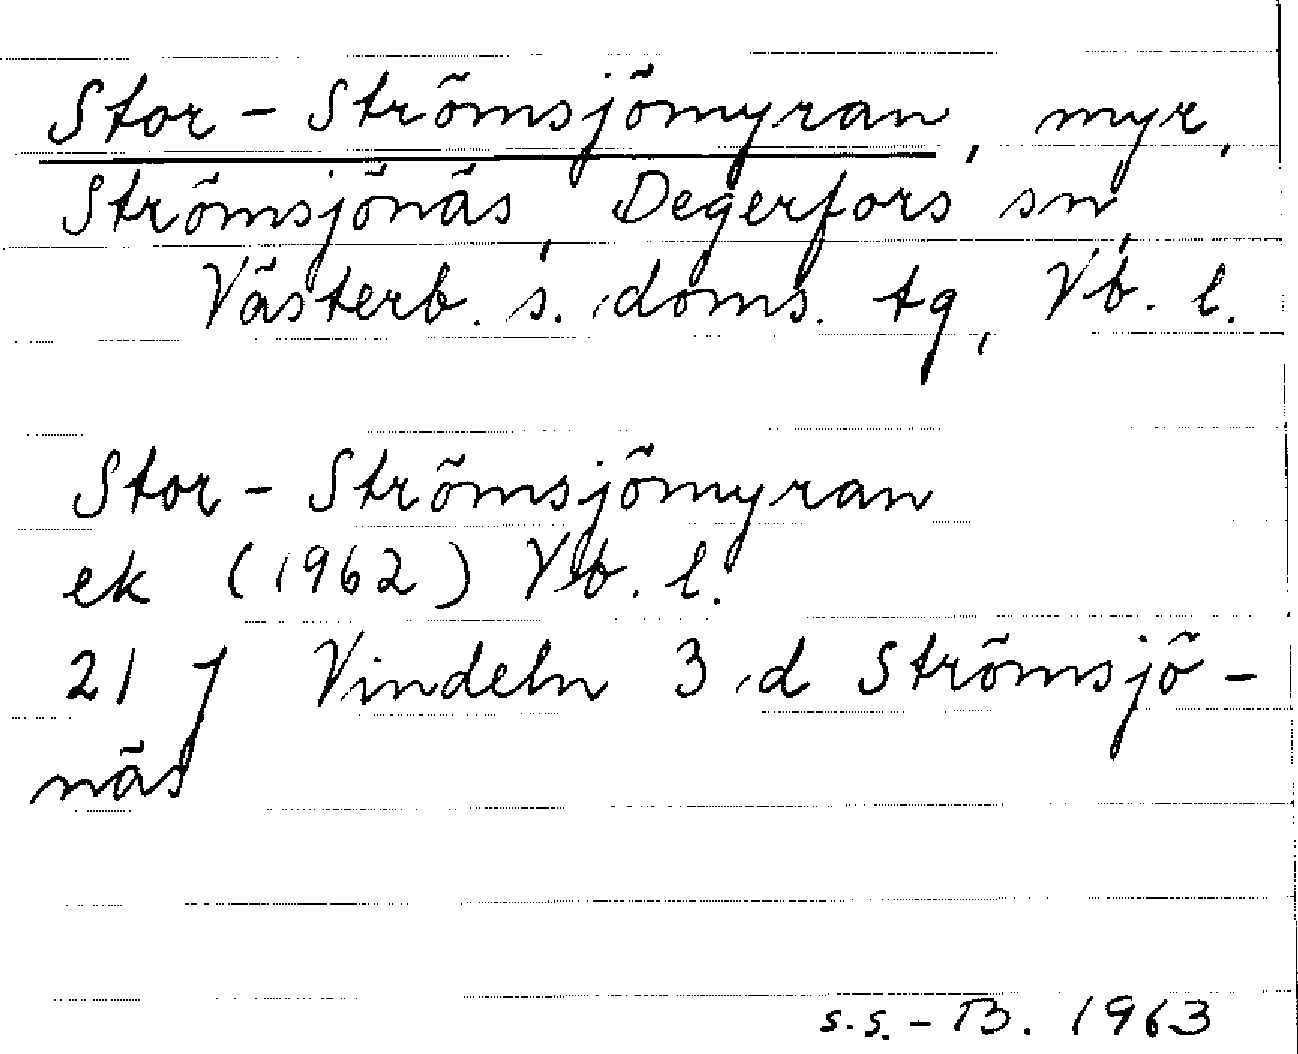 Stor-Strömsjömyran, myr,
Strömsjönäs, Degerfors sn,
Västerb. s. doms. tg, Vb. l.
Stor-Strömsjömyran
ek (1962) Vb. l.
21 J Vindeln 3 d Strömsjö-
näs
s.s.-B. 1963